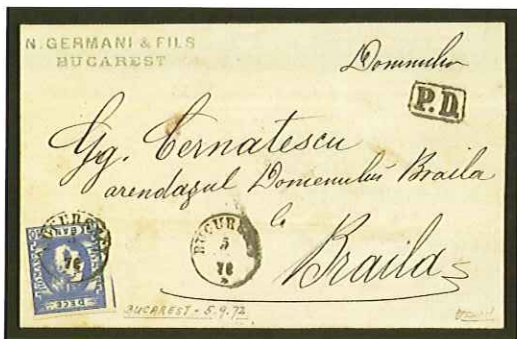 N. GERMANI & FILS
BUCAREST
Domnului
P.D.
Gg. Cernatescu
arendaşul Domenului Braila
la
Braila
BUCURE
5
76
BANI
DECE
BUCAREST - 5.9.72